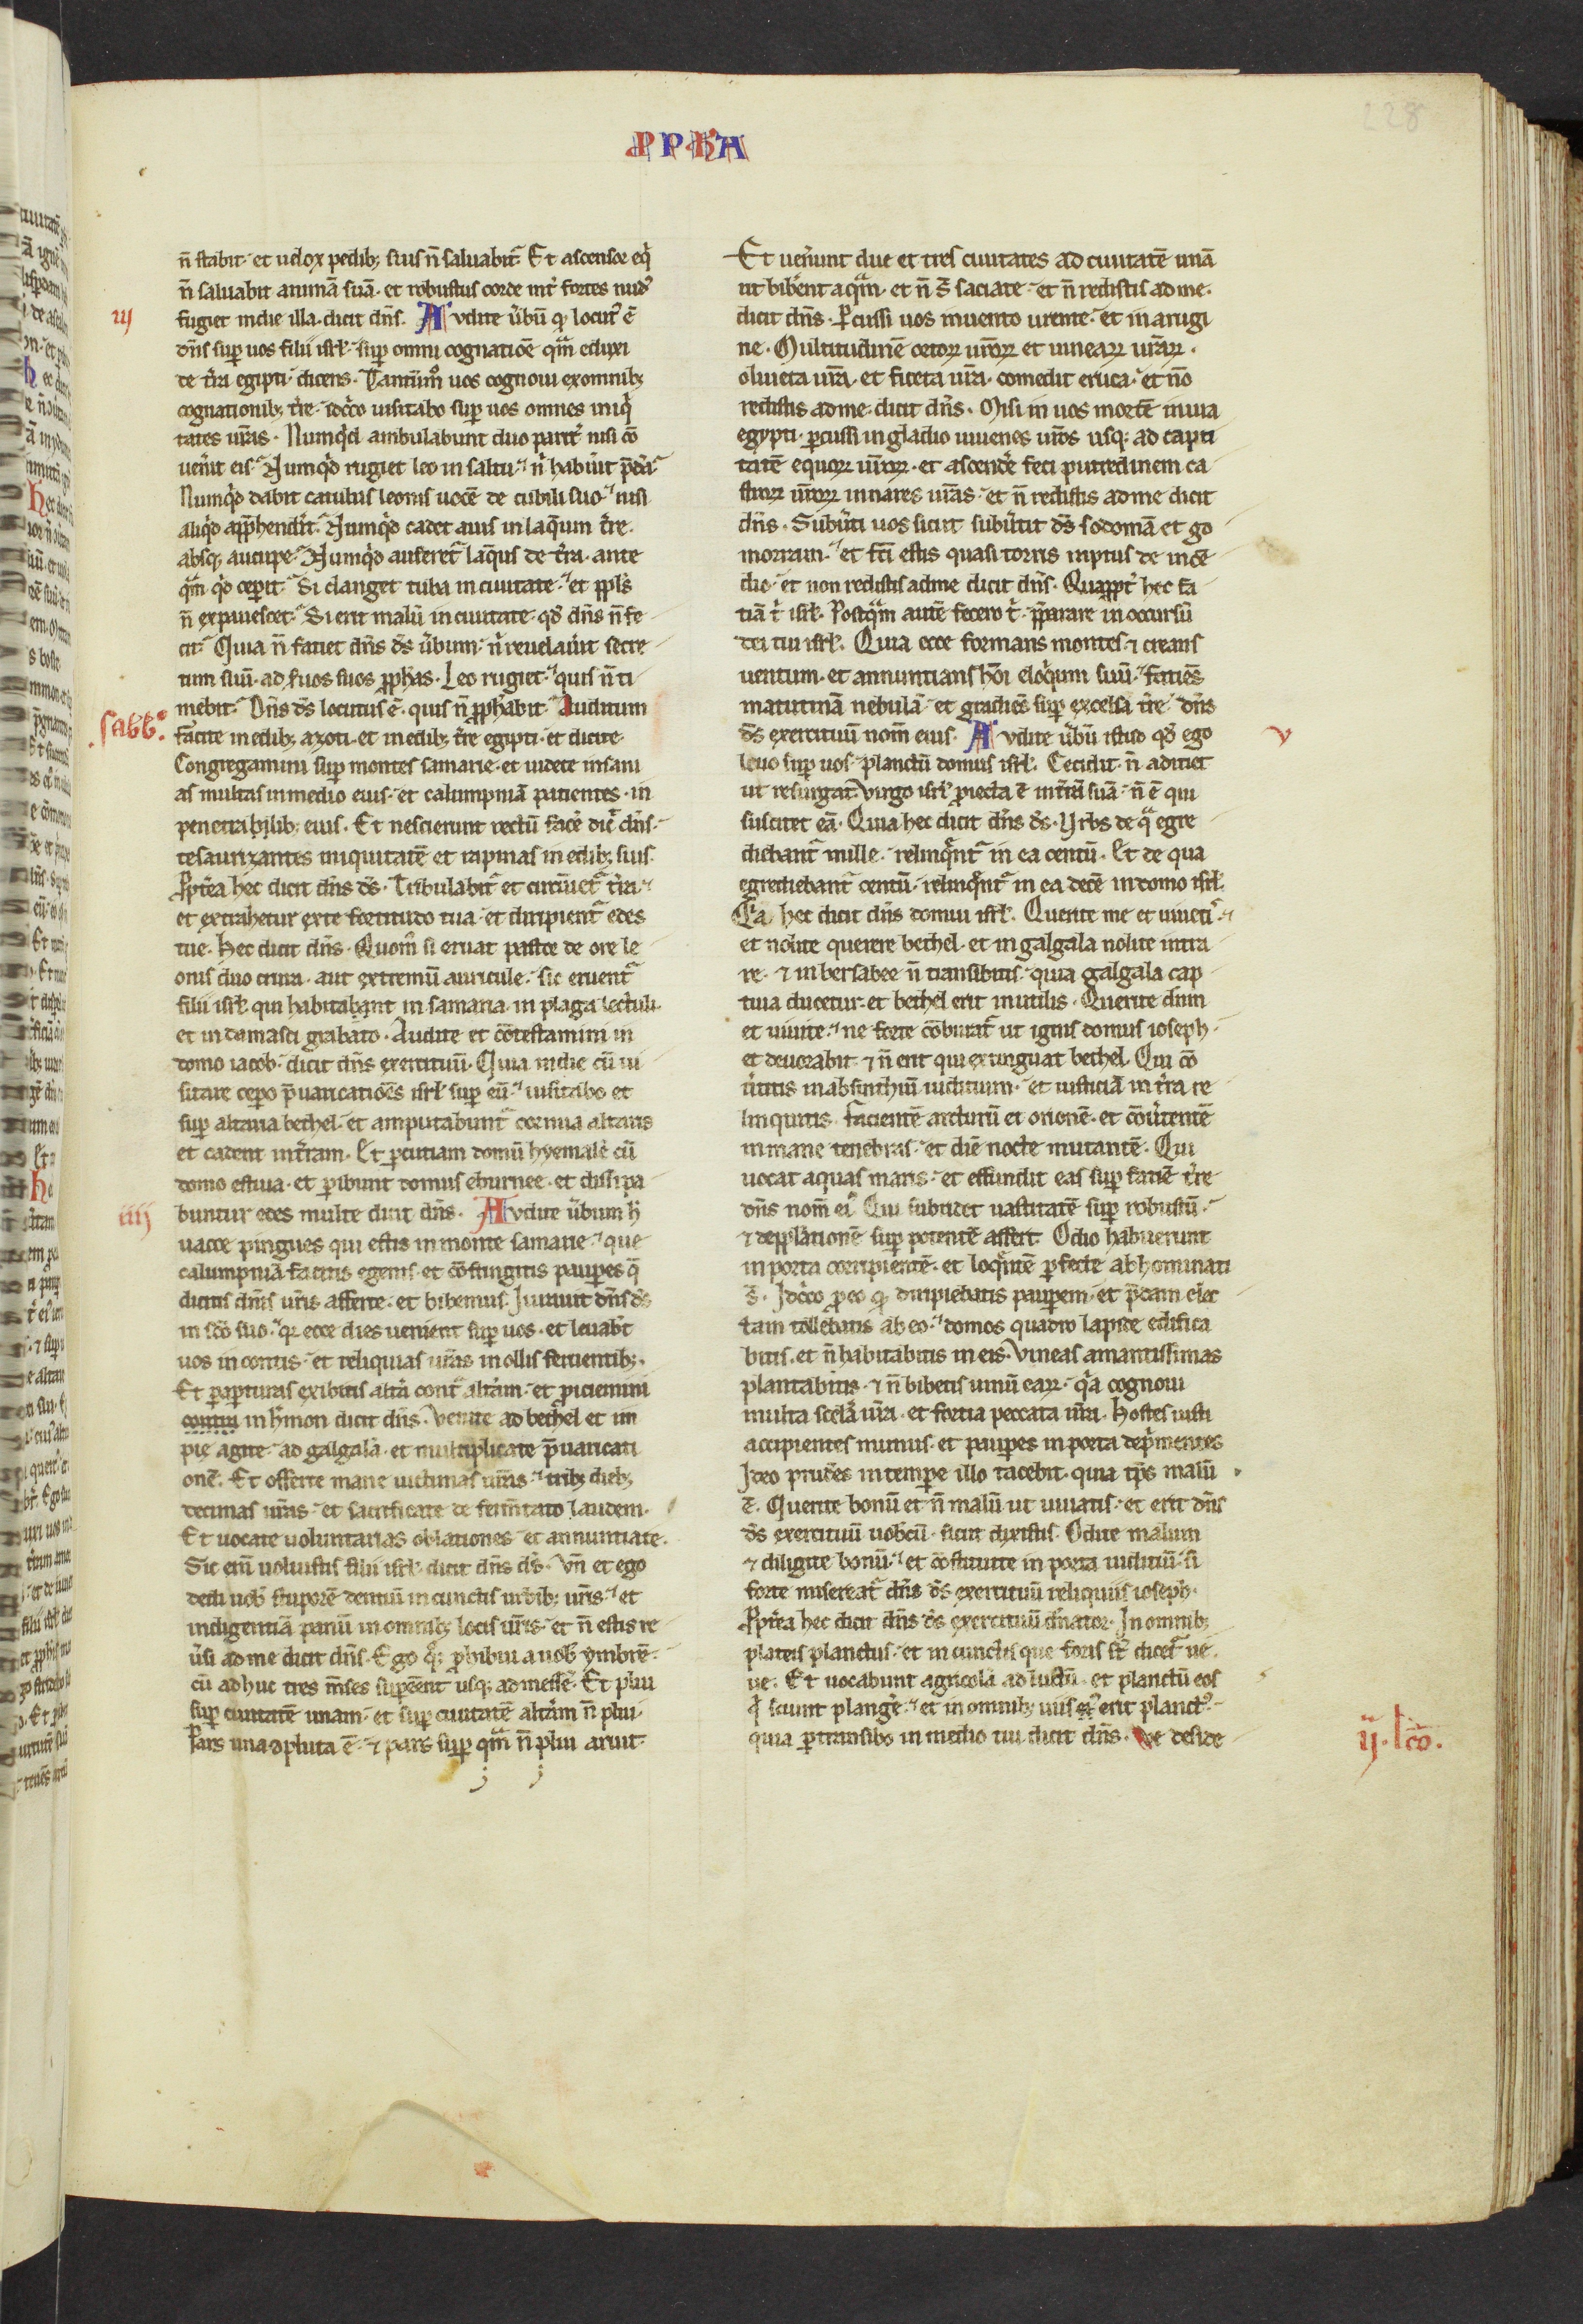 PPHA
228
n̄ stabit. et uelox pedib; suis n̄ saluabit᷑. Et ascensor eq̇
n̄ saluabit animā suā. et robustus corde int̉ fortes nud᷒
iij
fugiet in die illa. dicit dn̄s. Audite ūbū qđ locut᷒ ē
dn̄s sup̱ uos filii isrl̄. sup̱ omni cognatiōe qm̄ eduxi
de t̉ra egipti. dicens. Tantūm̊ uos cognoui ex omnib;
cognationib; t̉re. idc̊co uisitabo sup̱ uos omnes iniq̇
tates ur̄as. Numqđ ambulabunt duo parit̉ nisi cō
uen̉it eis. Numqđ rugiet leo in saltu. n̉ habủit p̄dā.
Numqđ dabit catulus leonis uocē de cubili suo. nisi
aliqđ app̱hendit̉. Numqđ cadet auis in laq̄um t̉re.
absq; aucupe. Numqđ auferet᷑ laq̄us de t̉ra. ante
qm̄ qđ cep̱it. Si clanget tuba in ciuitate. et ppl̄s
n̄ expauescet. Si erit malū in ciuitate. qđ dn̄s n̄ fe
cit. Quia n̄ faciet dn̄s ds̄ ūbum. n̉ reuelaủit secre
tum suū. ad s̉uos suos pph̄as. Leo rugiet. quis n̄ ti
mebit. Dn̄s ds̄ locutus ē. quis n̄ pph̄abit. Auditum
sabb᷒.
facite in edib; azoti. et in edib; t̉re egipti. et dicite.
Congregamini sup̱ montes samarie. et uidete insani
as multas in medio eius. et calumpniā patientes. in
penetrabilib; eius. Et nescierunt rectū facẻ dic̉ dn̄s.
tesaurizantes iniquitatē et rapinas in edib; suis.
Ppt̉ea hec dicit dn̄s ds̄. Tribulabit᷑ et circūiet᷑ t̉ra.
et extrahetur ex te fortitudo tua. et diripient᷑ edes
tue. Hec dicit dn̄s. Quom̊ si eruat pastor de ore le
onis duo crura. aut extremū auricule. sic eruent᷑
filii isrl̄ qui habitabant in samaria. in plaga lectuli.
et in damasci grabato. Audite et cōtestamini in
domo iacob. dicit dn̄s exercituū. Quia in die cū ui
sitare cepo p̄uaricatiōes isrl̄ sup̱ eū. uisitabo et
sup̱ altaria bethel. et amputabunt᷑ cornua altaris
et cadent in t̉ram. Et p̱cutiam domū hyemalē cū
domo estiua. et p̱ibunt domus eburnee. et dissipa
iiij
buntur edes multe dicit dn̄s. Audite ūbum h̉
uacce pingues qui estis in monte samarie. que
calumpniā facitis egenis. et cōfringitis paup̱es q̄
dicitis dn̄is ur̄is afferte. et bibemus. Iurauit dn̄s ds̄
in sc̄o suo. qr ecce dies uenient sup̱ uos. et leuabt̉
uos in contis. et reliquias ur̄as in ollis feruentib;.
Et p̱ ap̱turas exibitis alt̉a cont᷑ alt̉am. et ꝓiciemini
contra in h̉mon dicit dn̄s. Venite ad bethel et im
pie agite. ad galgalā. et multiplicate p̄uaricati
onē. Et offerte mane uictimas ur̄as. trib; dieb;
decimas ur̄as. et sacrificate de ferm̄tato laudem.
Et uocate uoluntarias oblationes et annuntiate.
Sic enī uoluistis filii isrl̄ dicit dn̄s ds̄. Vn̄ et ego
dedi uob̄ stuporē dentiū in cunctis urbib; ur̄is. et
indigentiā panū in omnib; locis ur̄is. et n̄ estis re
ūsi ad me dicit dn̄s. Ego q; ꝓhibui a uob̄ ymbrē.
cū adhuc tres m̄ses sup̱ēent usq; ad messē. Et plui
sup̱ ciuitatē unam. et sup̱ ciuitatē alt̉am n̄ plui.
Pars una cōpluta ē. ⁊ pars sup̱ qm̄ n̄ plui aruit.
Et uen̉unt due et tres ciuitates ad ciuitatē unā
ut bibẻnt aqm̄. et n̄ s̄ saciate. et n̄ redistis ad me.
dicit dn̄s. P̱cussi uos in uento urente. et in arugi
ne. Multitudinē ortoꝝ ur̄oꝝ et uineaꝝ ur̄aꝝ.
oliueta ur̄a. et ficeta ur̄a. comedit eruca. et nō
redistis ad me. dicit dn̄s. Misi in uos mortē in uia
egypti. p̱cussi in gladio iuuenes ur̄os usq; ad capti
tatē equoꝝ ur̄oꝝ. et ascendẻ feci putredinem ca
stroꝝ ur̄oꝝ in nares ur̄as. et n̄ redistis ad me dicit
dn̄s. Subūti uos sicut subūtit ds̄ sodomā et go
morram. et fc̄i estis quasi torris raptus de incē
dio. et non redistis ad me dicit dn̄s. Quappt̉ hec fa
ciā t̉ isrl̄. Postqm̄ autē fecero t̉. p̄parare in occursū
dei tui isrl̄. Quia ecce formans montes. ⁊ creans
uentum. et annuntians hōi eloq̇um suū. faciēs
matutinā nebulā. et gradiēs sup̱ excelsa t̉re. dn̄s
ds̄ exercituū nom̄ eius. Audite ūbū istud qđ ego
v
leuo sup̱ uos. planctū domus isrl̄. Cecidit. n̄ adiciet
ut resurgat. Virgo isrl̄ ꝓiecta ē in t̉rā suā. n̄ ē qui
suscitet eā. Quia hec dicit dn̄s ds̄. Vrbs de q̊ egre
diebant᷑ mille. relinq̄nt᷑ in ea centū. Et de qua
egrediebant᷑ centū. relinq̄nt᷑ in ea decē in domo isrl̄.
Q̊a hec dicit dn̄s domui isrl̄. Querite me et uiuetis.
et nolite querere bethel. et in galgala nolite intra
re. ⁊ in bersabee n̄ transibitis. quia galgala cap
tiua ducetur. et bethel erit inutilis. Querite dn̄m
et uiuite. ne forte cōburat᷑ ut ignis domus ioseph.
et deuorabit. ⁊ n̄ erit qui extinguat bethel. Qui cō
ūtitis in absinthiū iuditium. et iusticiā in t̉ra re
linquitis. facientē arcturū et orionē. et cōūtentē
in mane tenebras. et diē nocte mutantē. Qui
uocat aquas maris. et effundit eas sup̱ faciē t̉re
dn̄s nom̄ ei᷒. Qui subridet uastitatē sup̱ robustū.
⁊ depp̱lationē sup̱ potentē affert. Odio habuerunt
in porta corripientē. et loq̄ntē p̱fecte abhominati
s̄. Idc̊co ꝓ eo qđ diripiebatis paup̱em. et p̄dam elec
tam tollebatis ab eo. domos quadro lapide edifica
bitis. et n̄ habitabitis in eis. Vineas amantissimas
plantabitis. ⁊ n̄ bibetis uinū eaꝝ. q̊a cognoui
multa scelả ur̄a. et fortia peccata ur̄a. Hostes iusti
accipientes munus. et paup̱es in porta dep̉mentes
Ideo prudēs in tempe illo tacebit. quia tp̄s malū
ē. Querite bonū et n̄ malū ut uiuatis. et erit dn̄s
ds̄ exercituū uob̄cū. sicut dixistis. Odite malum
⁊ diligite bonū. et cōstituite in porta iuditiū. si
forte misereat᷑ dn̄s ds̄ exercituū reliquiis ioseph.
Ppt̉ea hec dicit dn̄s ds̄ exercituū dn̄ator. In omnib;
plateis planctus. et in cunctis que foris st̄ dicet᷑ ue
ue. Et uocabunt agricolā ad luctū. et planctū eos
q̇ sciunt plangẻ. et in omnib; uiis erit planct᷒.
quia p̱transibo in medio tui dicit dn̄s. Ve deside
ij. lc̄o.